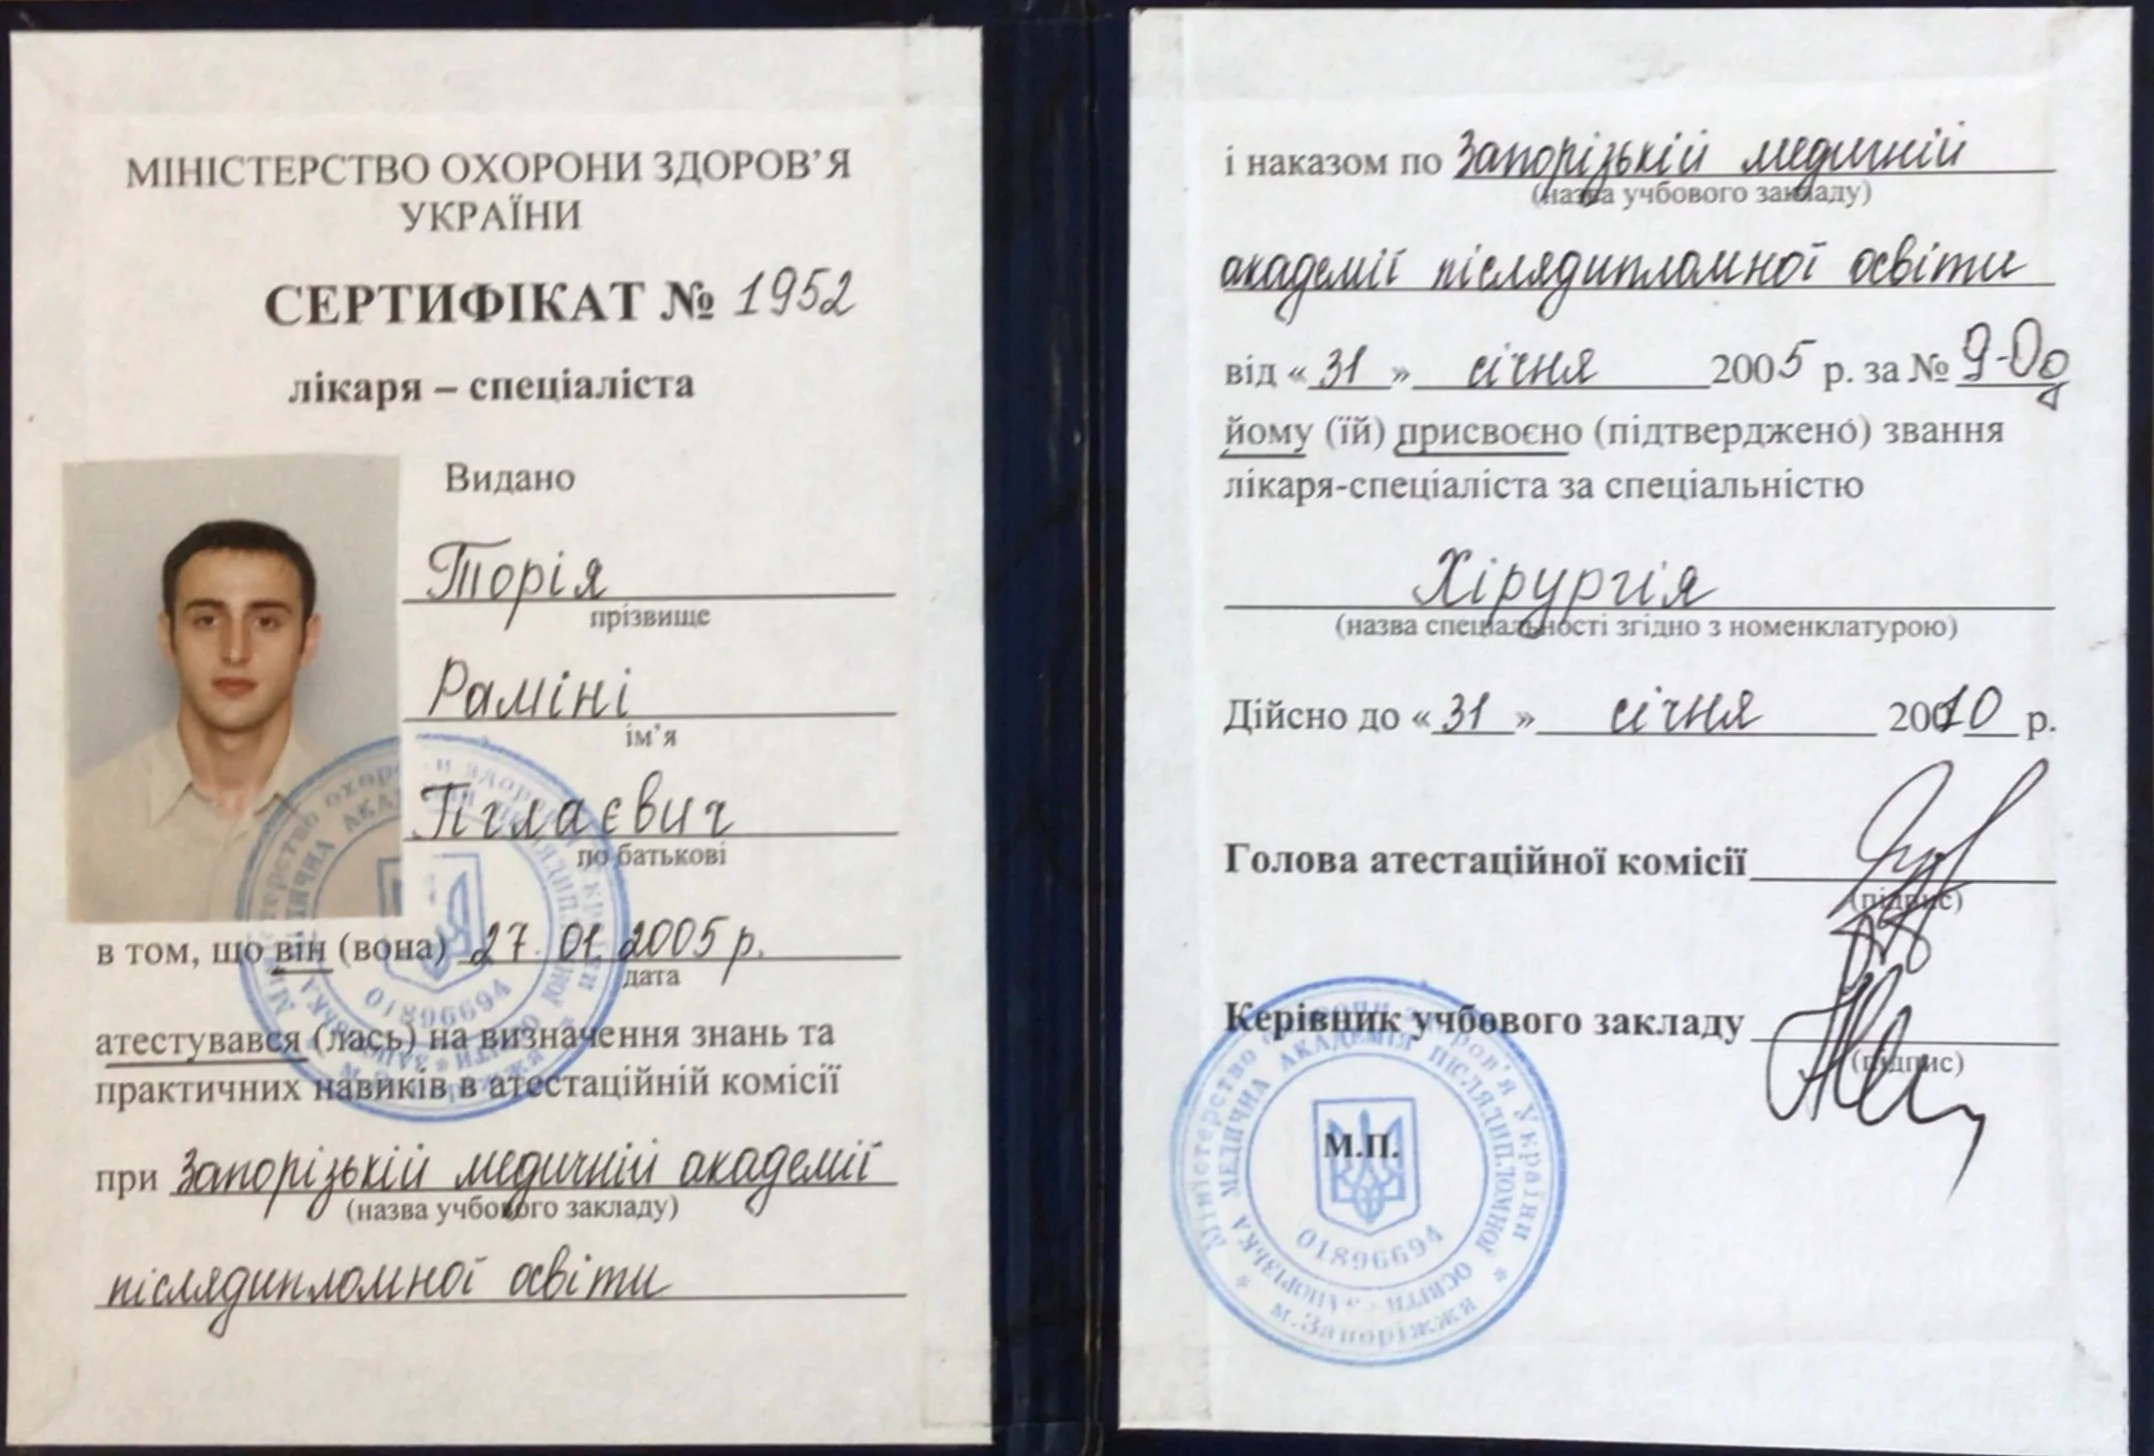 МІНІСТЕРСТВО ОХОРОНИ ЗДОРОВ’Я
УКРАЇНИ
СЕРТИФІКАТ № 1952
лікаря – спеціаліста
Видано
Торія
прізвище
Раміні
ім’я
по батькові
в том, що він (вона) 27. 01 2005 р.
дата
атестувався (лась) на визначення знань та
практичних навиків в атестаційній комісії
при Запорізькій медичній академії
(назва учбового закладу)
післядипломної освіти
01896694
і наказом по Запорізькій медичній
(назва учбового закладу)
академії післядипломної освіти
від « 31 » січня 2005 р. за № 9-Од
йому (їй) присвоєно (підтверджено) звання
лікаря-спеціаліста за спеціальністю
Хірургія
(назва спеціальності згідно з номенклатурою)
Дійсно до « 31 » січня 2010 р.
Голова атестаційної комісії
(підпис)
Керівник учбового закладу
(підпис)
М.П.
Міністерство охорони здоров'я України
ЗАПОРІЗЬКА МЕДИЧНА АКАДЕМІЯ ПІСЛЯДИПЛОМНОЇ ОСВІТИ
01896694
м.Запоріжжя